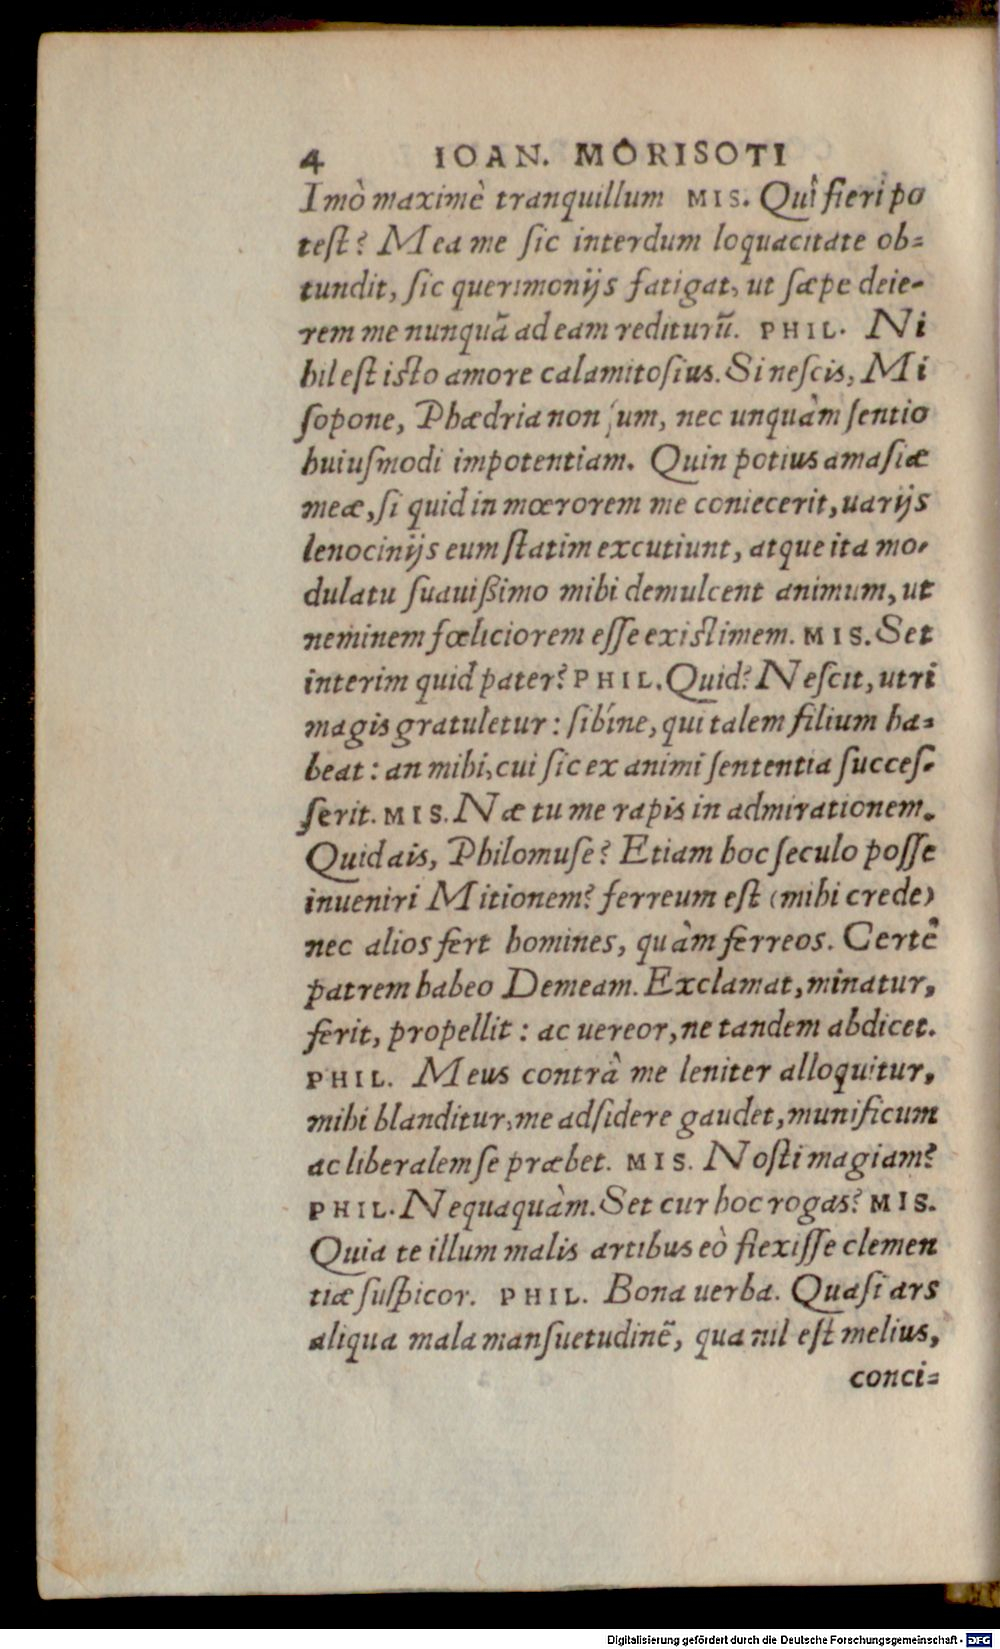 4 IOAN. MORISOTI
Imò maximè tranquillum MIS. Quî fieri po
test? Mea me sic interdum loquacitate ob=
tundit, sic querimonijs fatigat, ut sæpe deie-
rem me nunquā ad eam rediturū. PHIL. Ni
hil est isto amore calamitosius. Si nescis, Mi
sopone, Phædria non sum, nec unquàm sentio
huiusmodi impotentiam. Quin potius amasiæ
meæ, si quid in mœrorem me coniecerit, uarijs
lenocinijs eum statim excutiunt, atque ita mo-
dulatu suauißimo mihi demulcent animum, ut
neminem fœliciorem esse existimem. MIS. Set
interim quid pater? PHIL. Quid? Nescit, utri
magis gratuletur: sibíne, qui talem filium ha=
beat: an mihi, cui sic ex animi sententia succes-
serit. MIS. Næ tu me rapis in admirationem.
Quid ais, Philomuse? Etiam hoc seculo posse
inueniri Mitionem? ferreum est (mihi crede)
nec alios fert homines, quàm ferreos. Certè
patrem habeo Demeam. Exclamat, minatur,
ferit, propellit: ac uereor, ne tandem abdicet.
PHIL. Meus contrà me leniter alloquitur,
mihi blanditur, me adsidere gaudet, munificum
ac liberalem se præbet. MIS. Nosti magiam?
PHIL. Nequaquàm. Set cur hoc rogas? MIS.
Quia te illum malis artibus eò flexisse clemen
tiæ suspicor. PHIL. Bona uerba. Quasi ars
aliqua mala mansuetudinē, qua nil est melius,
conci=
Digitalisierung gefördert durch die Deutsche Forschungsgemeinschaft - DFG